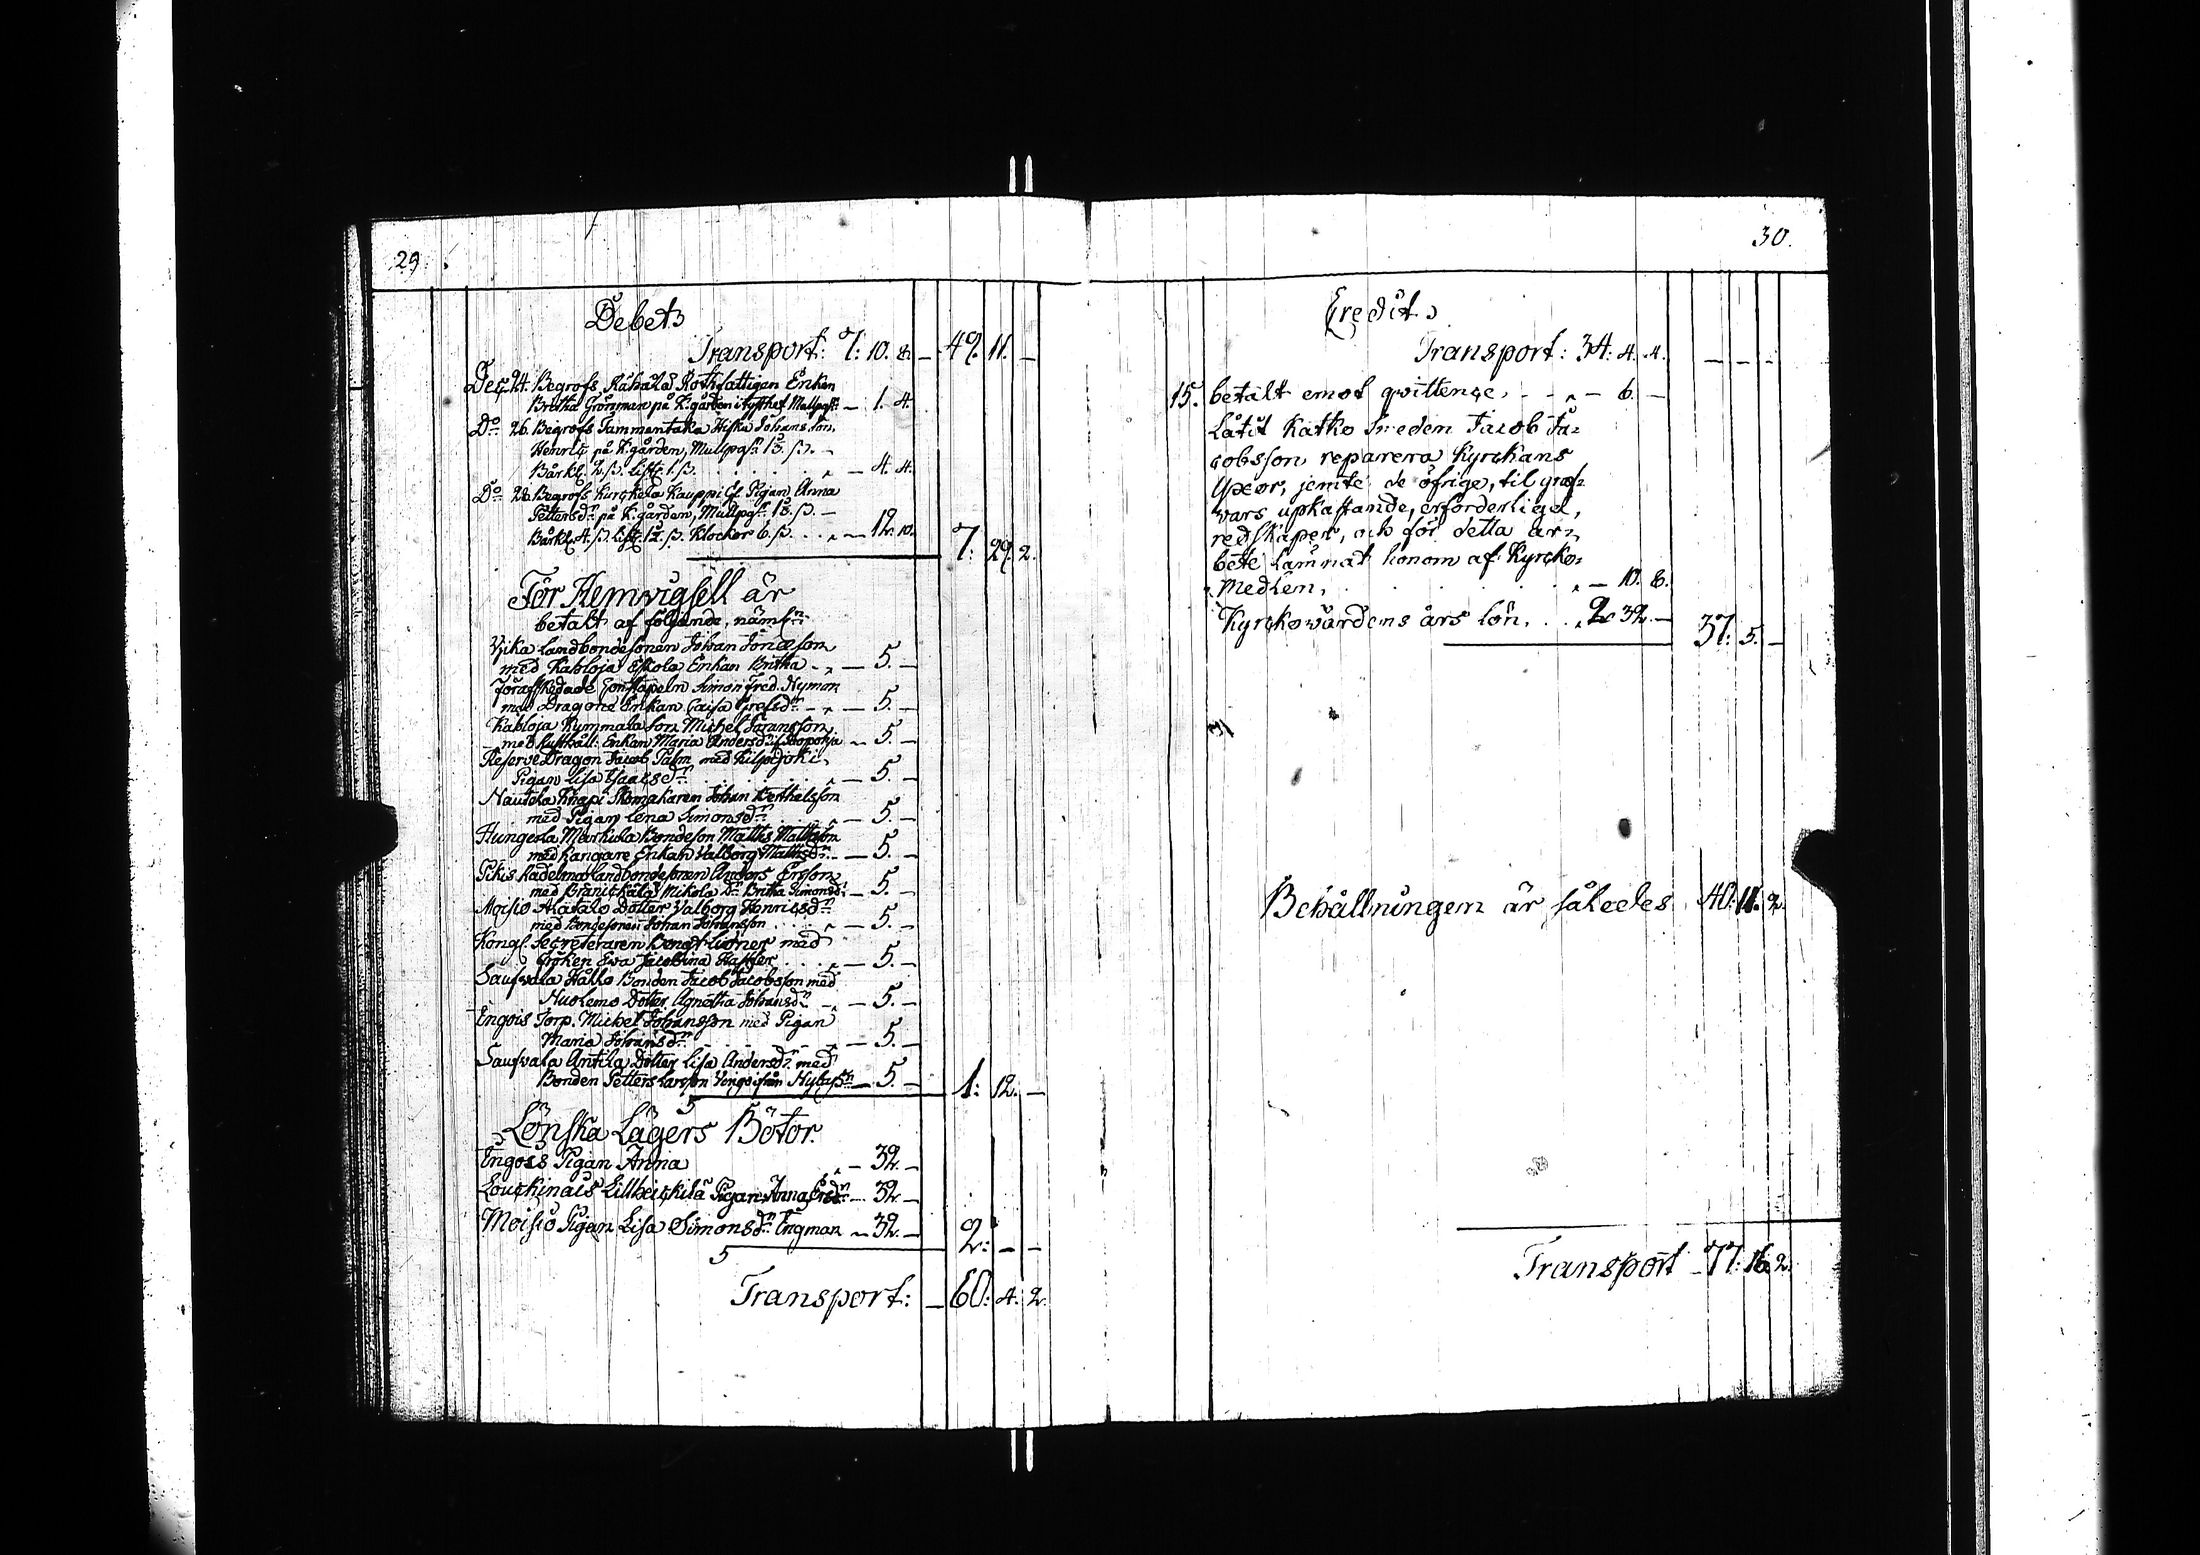 29.
Debet
Transport: 7: 10. 8. — 49. 11. —
Dec. 24. Begrofs Rahala Rothfattigan Enkan
Britha Grönman på K:gården Mullpgr — 1. 4.
Do 26. Begrofs Tammentaka Johansson
Henric på K:gården, Mullpgr 13. ß. —
Bårkl. 2. ß. 1. ß. „ — 4. 4.
Do 28. Begrofs Kurckela Kauppi Pigan Anna
Pettersdr på K:gården, Mullpgr 13. ß. —
Bårkl. 4. ß. 12. ß. Klockor 6. ß. . . „ — 12. 10. 7: 29. 2.
För Hemvigsell är
betalt af följande, näml:n
landbondesonen Johan
med Kabloja Eskola Enkan Britha . „ — 5. —
förafskedade Simon Fred. Nyman
med Dragone Enkan Caisa — „ — 5. —
Kabloja Kymmala son Michel
med Enkan Maria Andersdr — 5. —
Reserve Dragon Jacob Palm med Kilpijoki
Pigan Lisa Isaacsdr „ — 5. —
Nautela Knapi Skomakaren Johan Berthelsson
med Pigan Lena Simonsdr „ — 5. —
Hungerla Markula Bondeson Matts Mattsson
med Kangare Enkan Valborg Mattsdr — 5. —
Pikis Kadelma landbondesonen Anders Ersson
med Mikola dr Britha Simonsdr — 5. —
Moisio Alatalo Dotter Valborg Henricsdr
med Bondesonen Johan Johansson . . . „ — 5. —
Kongl. Secreteraren Bengt med
fröken Ewa Jacobina . . . „ — 5. —
Saufvala Hallo Bonden Jacob Jacobsson med
Nuolemo Doter Agnetha Johansdr „ — 5. —
Engois Torp. Michel Johansson med Pigan
Maria Johansdr „ — 5. —
Saufvala Antila Dotter Lisa Andersdr med
Bonden Petter Larsson från — 5. — 1: 12. —
Lönska Lägers Böter.
Engois Pigan Anna „ — 32. —
Louckinais Lillheickilä Pigan Anna Ersdr — 32. —
Moisio Pigan Lisa Simonsdr Engman — 32. — 2: — —
Transport: — 60: 4. 2.
30.
Credit
Transport: 34: 4. 4. — — —
15. betalt emot qvittence, - - „ — 6. —
Låtit Katko Smeden Jacob Ja=
cobsson reparera Kyrckans
Yxor, jemte de öfrige, til graf=
vars upkastande, erforderliga,
redskaper, och för detta ar=
bete lämnat honom af Kyrcko=
Medlen, „ — 10. 8.
Kyrckowärdens års lön, . . . 2. 32. — 37: 5. —
Behållningen är således 40: 11. 2.
Transport — 77: 16. 2.